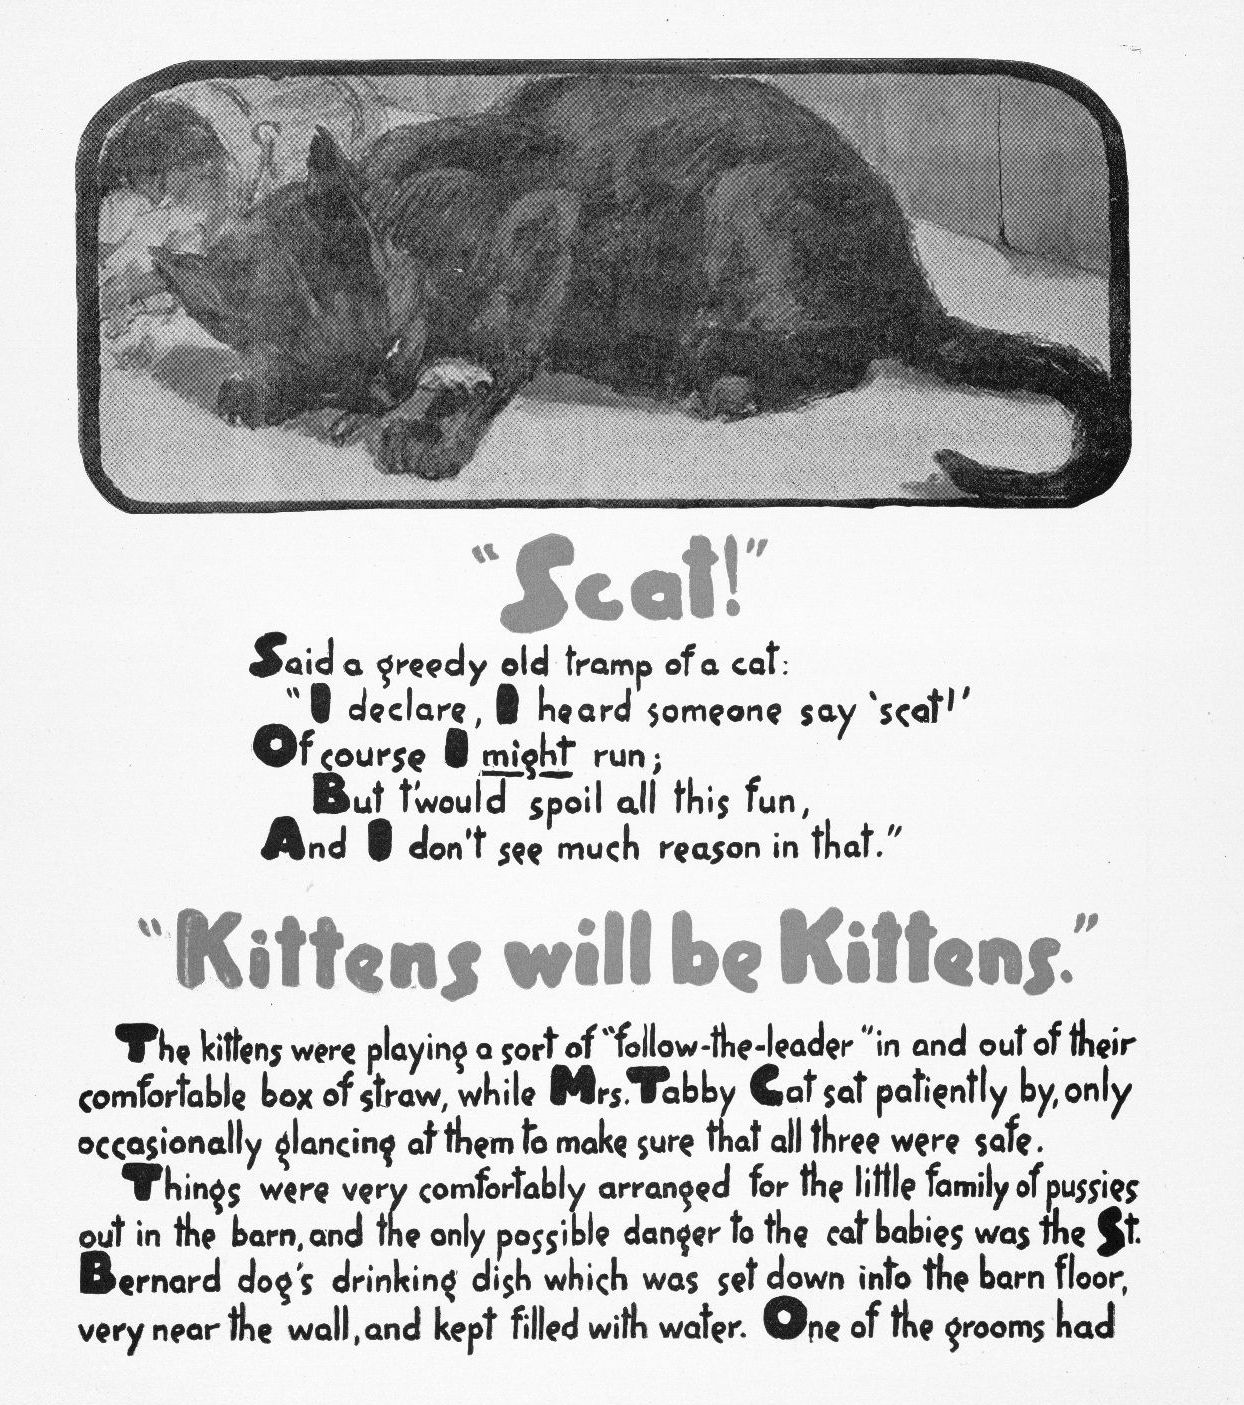 "Scat!"
Said a greedy old tramp of a cat:
"I declare, I heard someone say 'scat!'
Of course I might run;
But t'would spoil all this fun,
And I don't see much reason in that."
"Kittens will be Kittens."
The kittens were playing a sort of "follow-the-leader" in and out of their
comfortable box of straw, while Mrs. Tabby Cat sat patiently by, only
occasionally glancing at them to make sure that all three were safe.
Things were very comfortably arranged for the little family of pussies
out in the barn, and the only possible danger to the cat babies was the St.
Bernard dog's drinking dish which was set down into the barn floor,
very near the wall, and kept filled with water. One of the grooms had